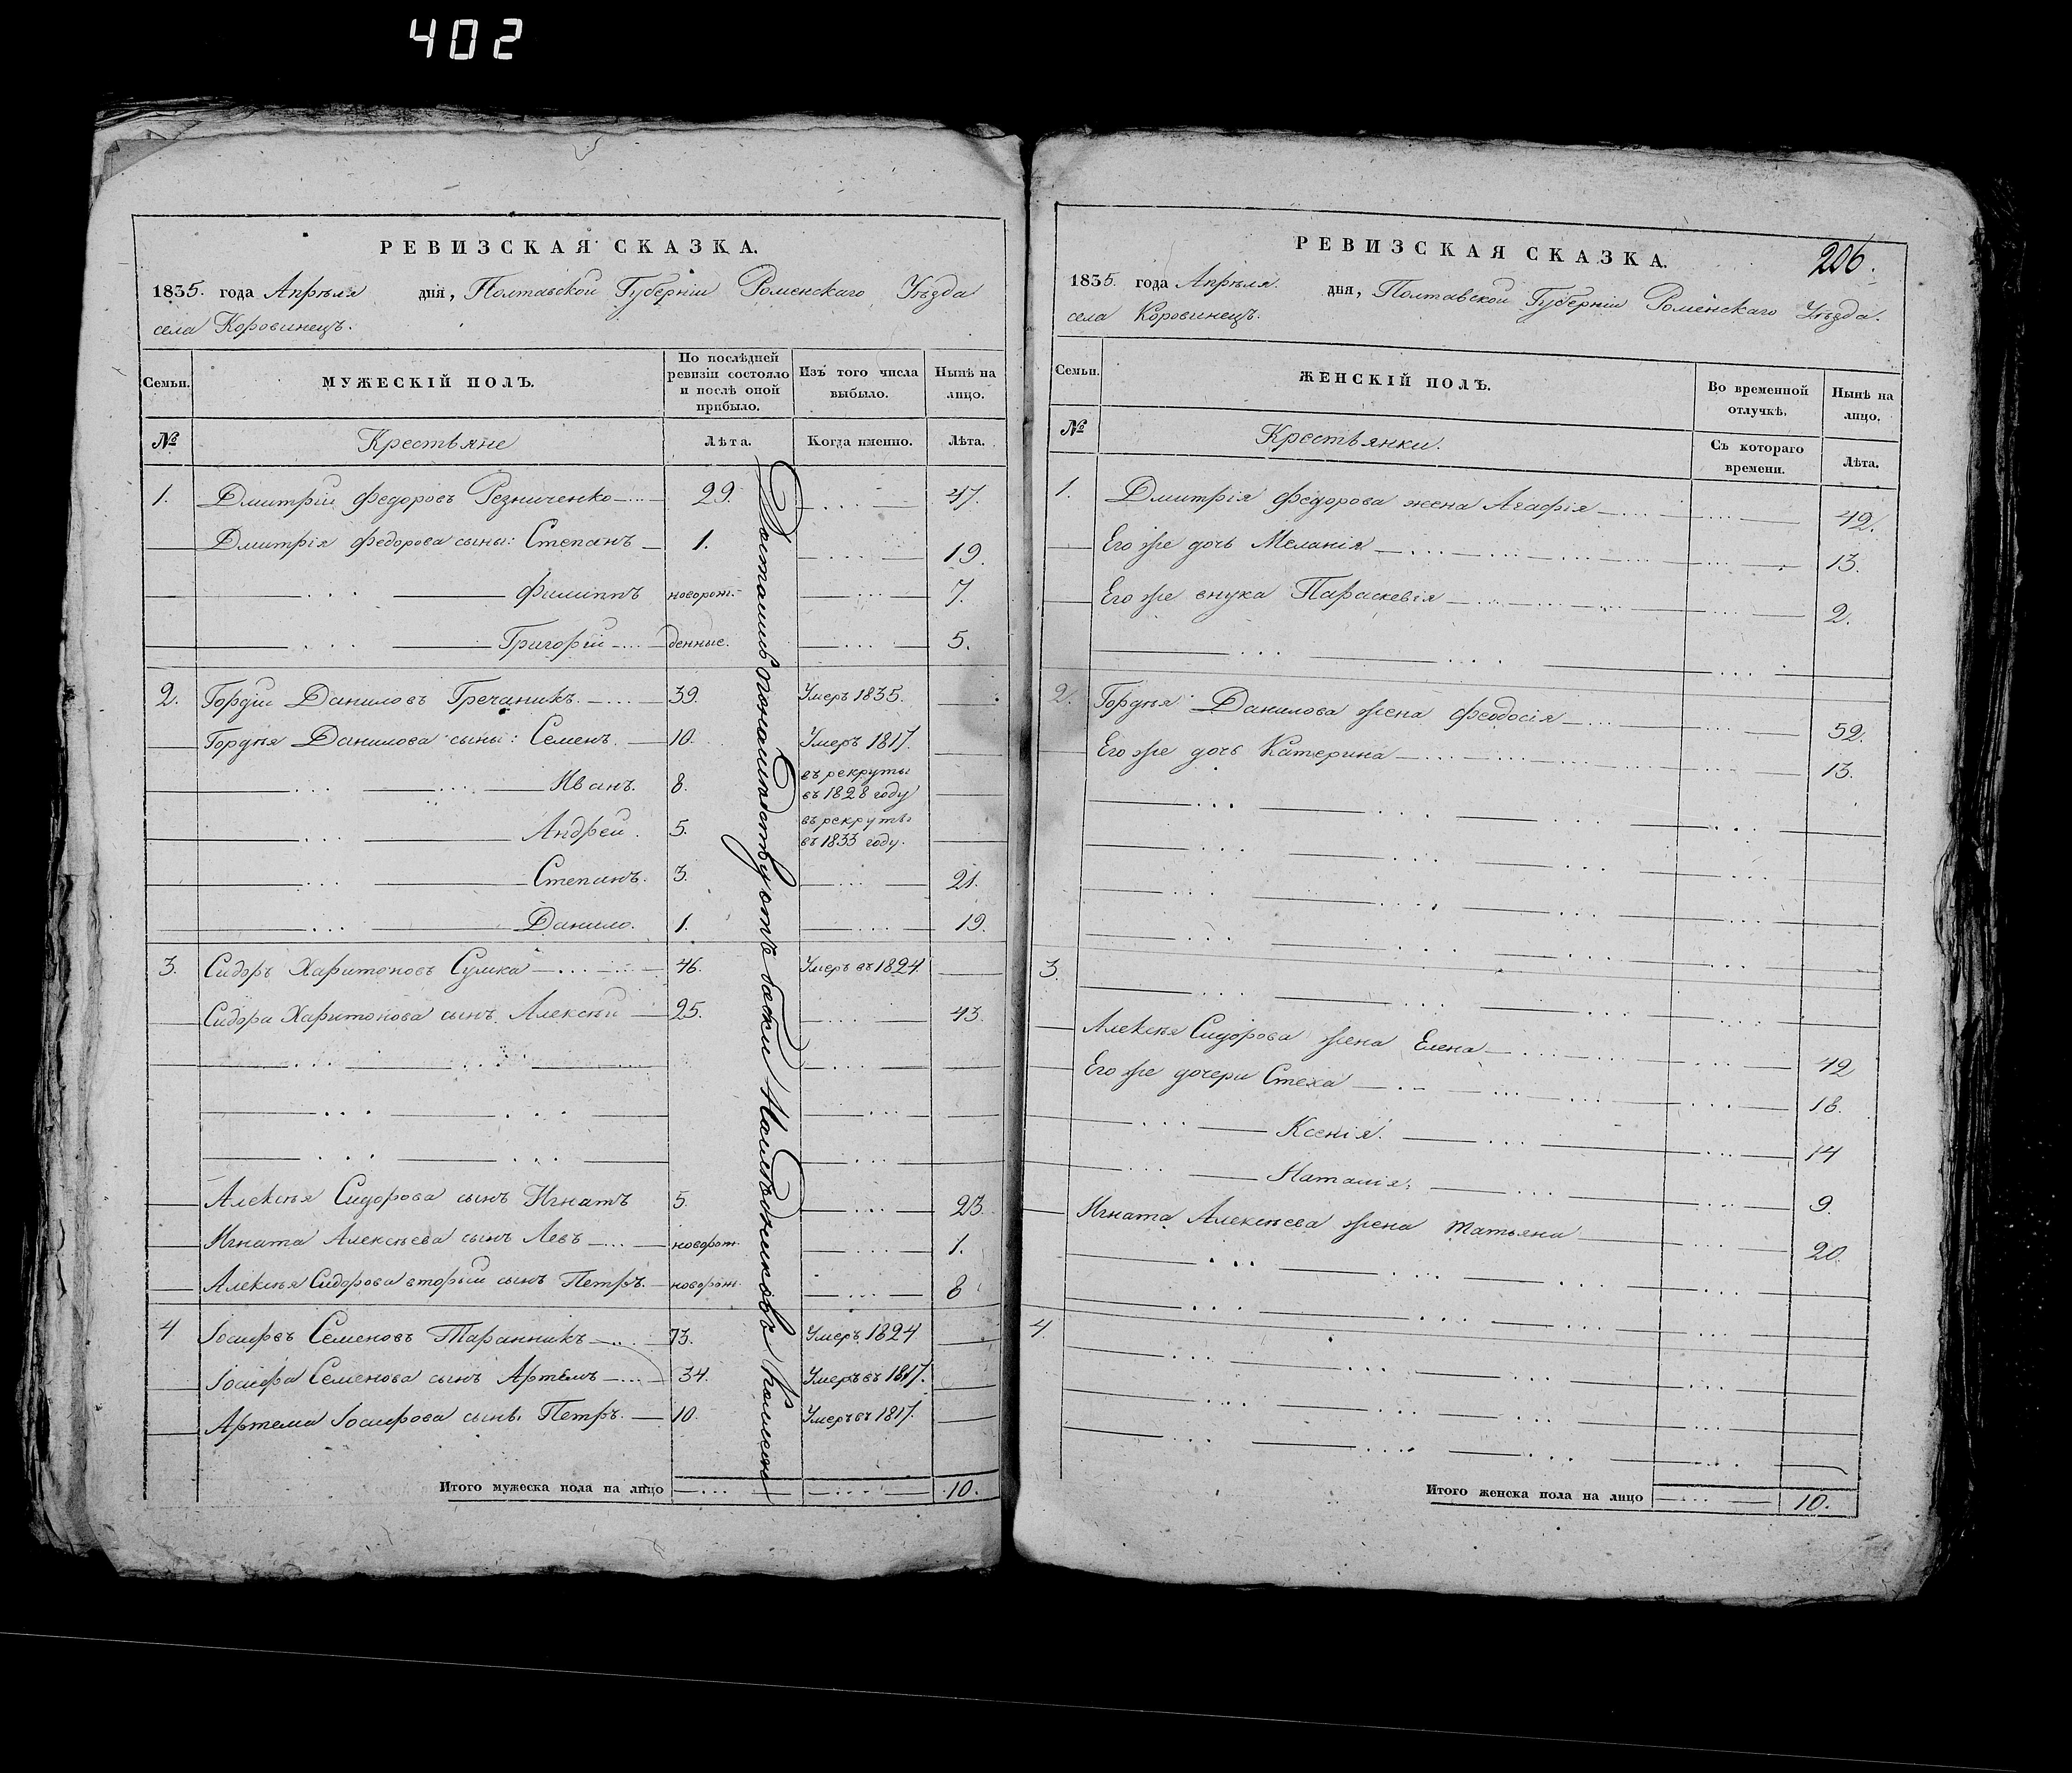 402
РЕВИЗСКАЯ СКАЗКА.
1835. года Апрѣля дня, Полтавской Губерніи Роменскаго Уѣзда
села Коровинецъ.
Семьи. МУЖЕСКІЙ ПОЛЪ. По послѣдней ревизіи состояло и послѣ оной прибыло. Изъ того числа выбыло. Нынѣ на лицо.
№ Крестьяне Лѣта. Когда именно. Лѣта.
1. Дмитрій Федоровъ Резниченко 29. 47.
Дмитрія Федорова сыны: Степанъ 1. 19.
Филиппъ новорож- 7.
Григорій денные. 5.
2. Гордій Даниловъ Гречаникъ. 39. Умеръ 1835.
Гордѣя Данилова сыны: Семенъ. 10. Умеръ 1817.
Иванъ. 8. въ рекруты въ 1828 году
Андрей. 5. въ рекруты въ 1833 году.
Степанъ. 3. 21.
Данило. 1. 19.
3. Сидоръ Харитоновъ Сумка 46. Умеръ въ 1824.
Сидора Харитонова сынъ Алексѣй 25. 43.
Алексѣя Сидорова сынъ Игнатъ 5. 23.
Игната Алексѣева сынъ Левъ новорож. 1.
Алексѣя Сидорова вторый сынъ Петръ. новорож. 8
4 Іосифъ Семеновъ Таранникъ 73. Умеръ 1824
Іосифа Семенова сынъ Артемъ 34. Умеръ въ 1817.
Артема Іосифова сынъ Петръ. 10. Умеръ въ 1817.
Итого мужеска пола на лицо 10.
РЕВИЗСКАЯ СКАЗКА. 206.
1835. года Апрѣля. дня, Полтавской Губерніи Роменскаго Уѣзда.
села Коровинецъ.
Семьи. ЖЕНСКІЙ ПОЛЪ. Во временной отлучкѣ. Нынѣ на лицо.
№ Крестьянки. Съ котораго времени. Лѣта.
1. Дмитрія Федорова жена Агафія 42.
Его же дочь Меланія 13.
Его же внука Параскевія 2.
2. Гордѣя Данилова жена Феодосія 52.
Его же дочь Катерина 13.
3.
Алексѣя Сидорова жена Елена 42
Его же дочери Стеха 18.
Ксенія. 14
Наталія. 9.
Игната Алексѣева жена Татьяна 20.
4.
Итого женска пола на лицо 10.